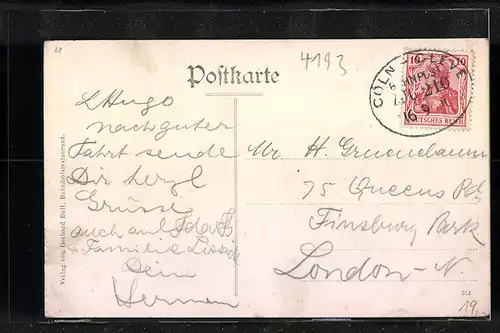 4193
Postkarte
CÖLN - CLEVE
BAHNPOST
ZUG 210
16 9
10 10
DEUTSCHES REICH
L Hugo
nach guter
Fahrt sende
Dir herzl
Grüsse
auch an
Familie
Dein
Herman
Mr H. Gruenebaum
75 Queens Rd
Finsbury Park
London - N.
Verlag von Gerhard Boll, Bahnhofsrestaurant.
19,-